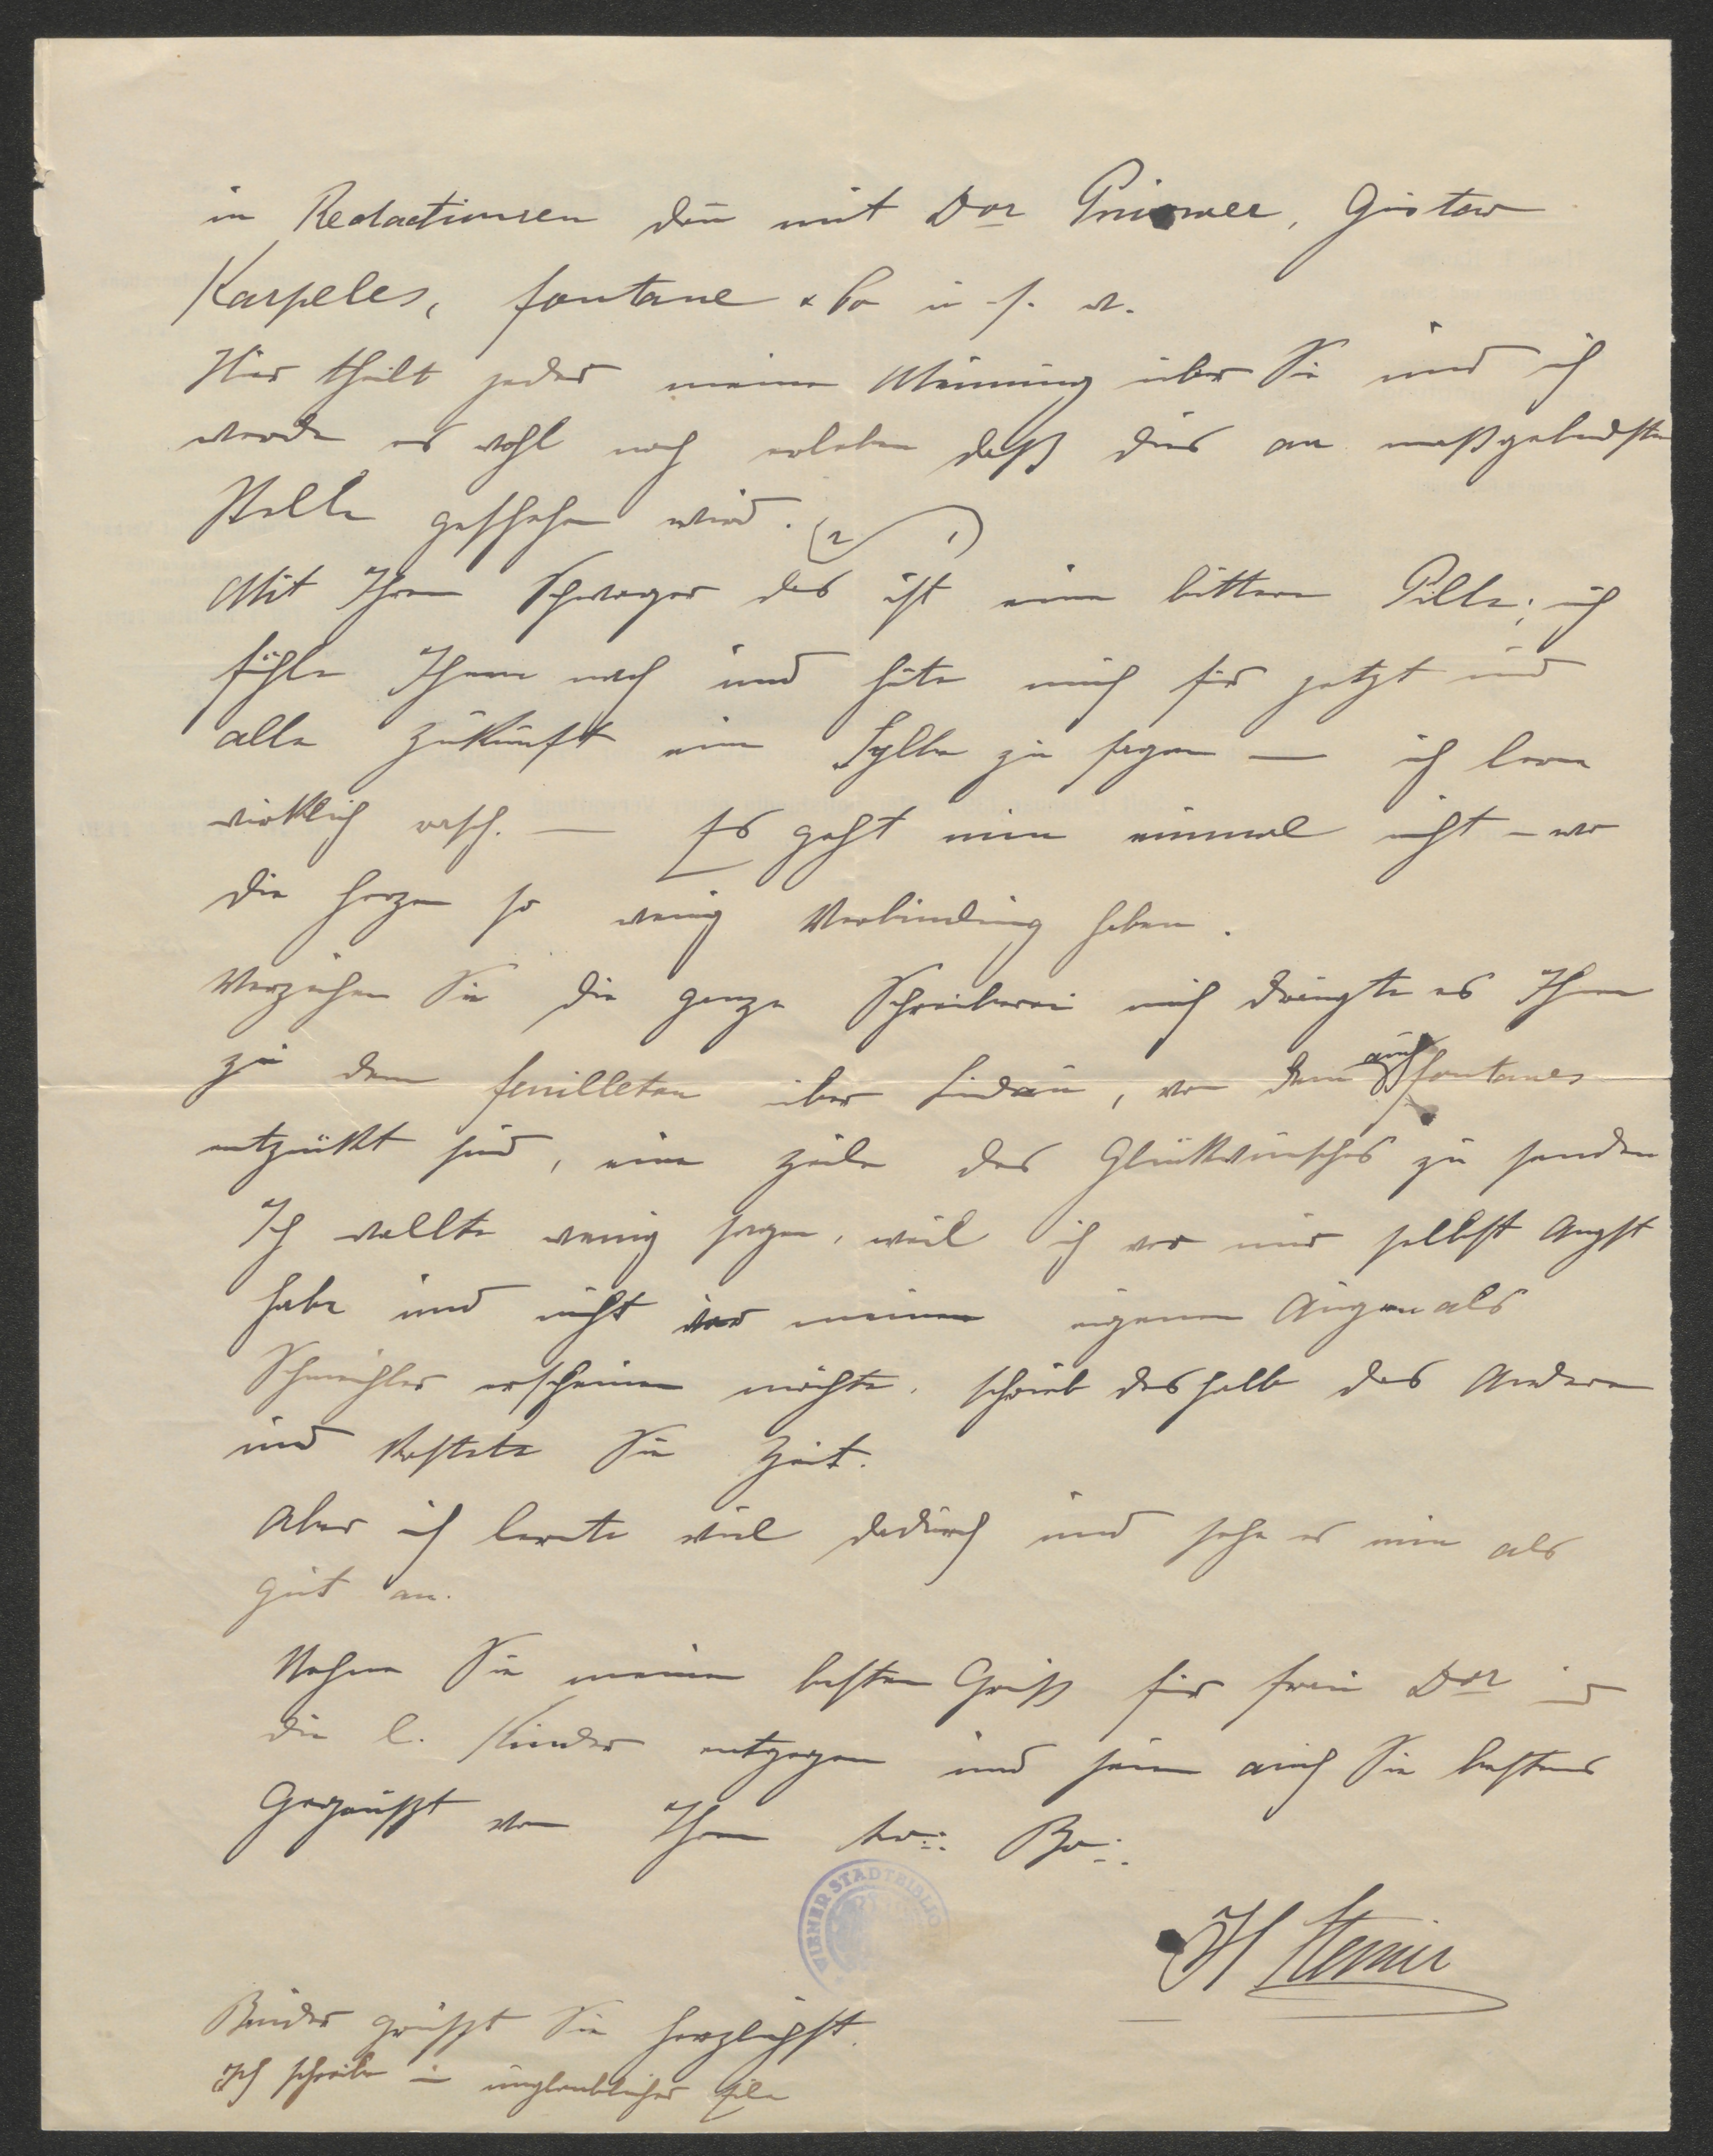 in Redactionen dan̄ mit Dor Pniower, Gustav
Karpeles, Fontane & Co u. s. w.
Hier theilt jeder meine Meinung über Sie und ich
werde es wohl noch erleben daß dies an maßgebendster
Stelle geschehen wird.
(2 1)
Mit Ihrem Schwager das ist eine bittere Pille; ich
fühle Ihnen nach und hüte mich für jetzt und
alle Zukunft eine Sylbe zu sagen — ich lerne
wirklich rasch. — Es geht nun einmal nicht – wo
die Herzen so wenig Verbindung haben.
Verzeihen Sie die ganze Schreiberei mich drängte es Ihnen
zu dem Feuilleton über Lindau, von dem auch Fontanes
entzückt sind, eine Zeile des Glückwunsches zu senden
Ich wollte wenig sagen, weil ich vor mir selbst Angst
habe und nicht vor meinen eigenen Augen als
Schmeichler erscheinen möchte, schrieb deshalb das Andere
und kostete Sie Zeit.
Aber ich lernte viel dadurch und sehe es nun als
gut an.
Nehmen Sie meinen besten Gruß für Frau Dor und
die l. Kinder entgegen und seien auch Sie bestens
Gegrüßt von Ihrem tr.: Br.:
WIENER STADTBIBLIO
H Sternir
Bruder grüßt Sie herzlichst.
Ich schreibe in unglaublicher Eile